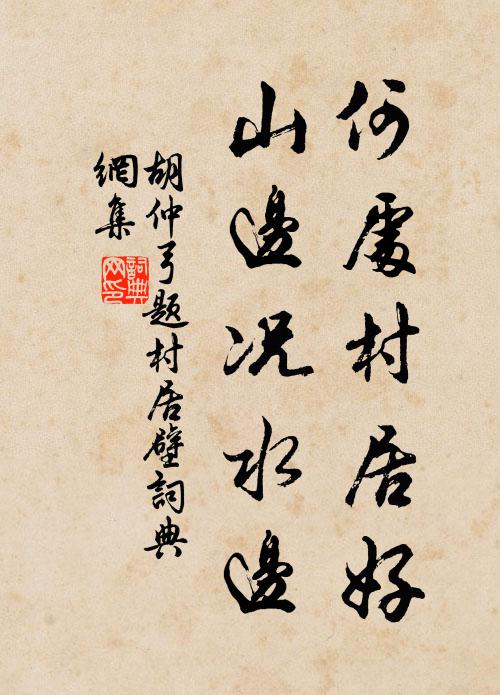 何處村居好
山邊況水邊
胡仲弓題村居壁詞典
網集
詞典
网印